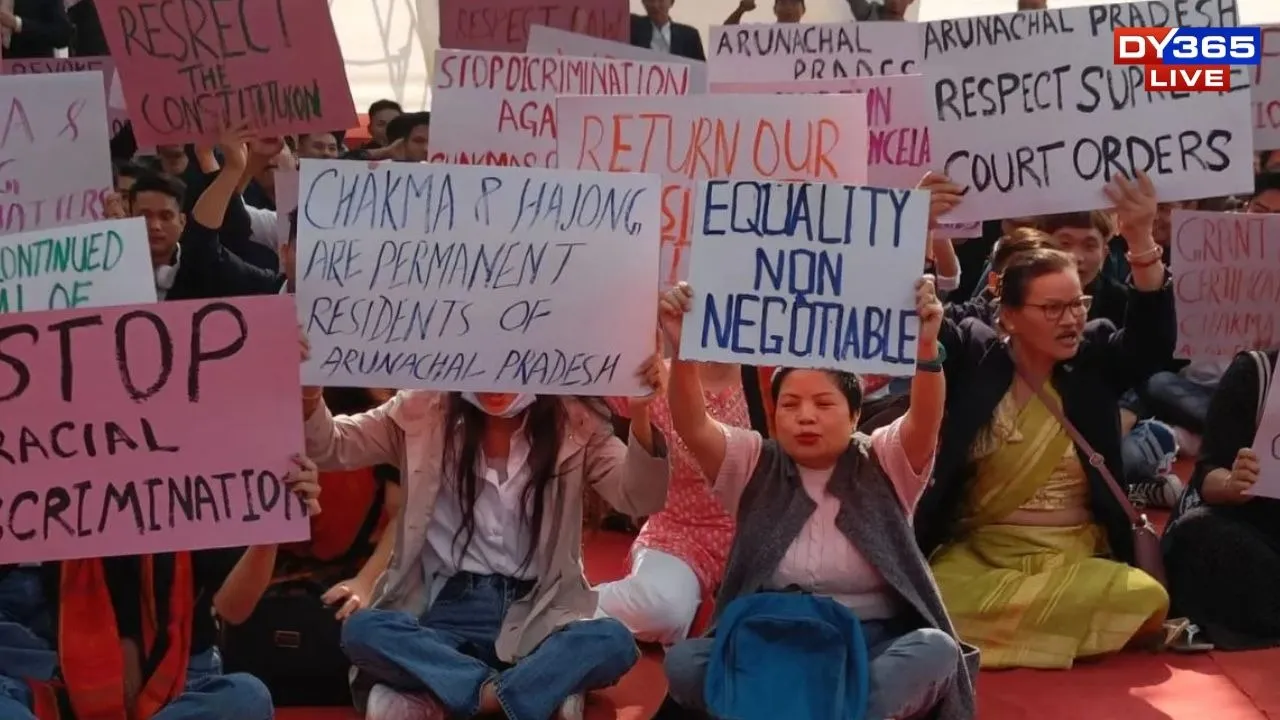 RESRECT
THE
CONSTITUTION
RESPECT LAW
STOP DICRIMINATION
AGA
RETURN OUR
ARUNACHAL
PRADES
ARUNACHAL PRADESH
RESPECT SUPREME
COURT ORDERS
DY365
LIVE
CHAKMA & HAJONG
ARE PERMANENT
RESIDENTS OF
ARUNACHAL PRADESH
EQUALITY
NON
NEGOTIABLE
ONTINUED
OF
STOP
RACIAL
SCRIMINATION
GRANT
CHAKMA